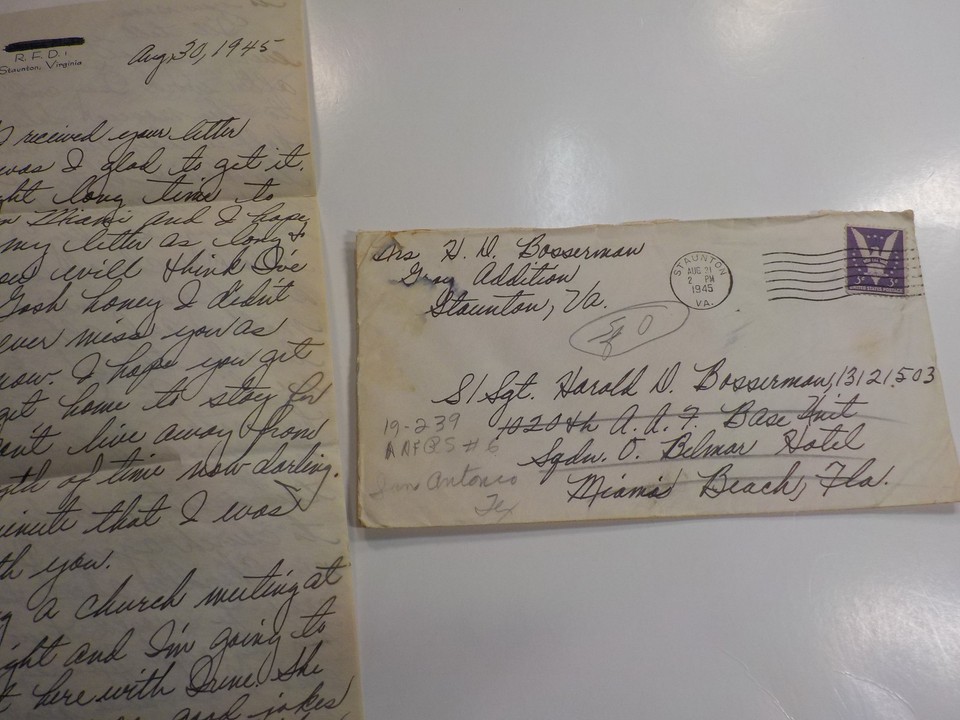 R.F.D. 1
Staunton, Virginia
Aug. 30, 1945
I received your letter
was I glad to get it.
ght long time to
n Miami and I hope
my letter as long &
ou will think I've
Gosh honey I didn't
ever miss you as
now. I hope you get
get home to stay for
on't live away from
gth of time now darling.
minute that I was
th you.
g a church meeting at
ght and I'm going to
t here with June. She
good jokes
Mrs H. D. Bosserman
Gray Addition
Staunton, Va.
STAUNTON
AUG 31
2 PM
1945
VA.
3¢ 3¢
UNITED STATES POSTAGE
S/Sgt. Harold D. Bosserman, 13121503
1020th A.A.F. Base Unit
Sqdn. O. Belmar Hotel
Miami Beach, Fla.
19-239
San Antonio
Tex